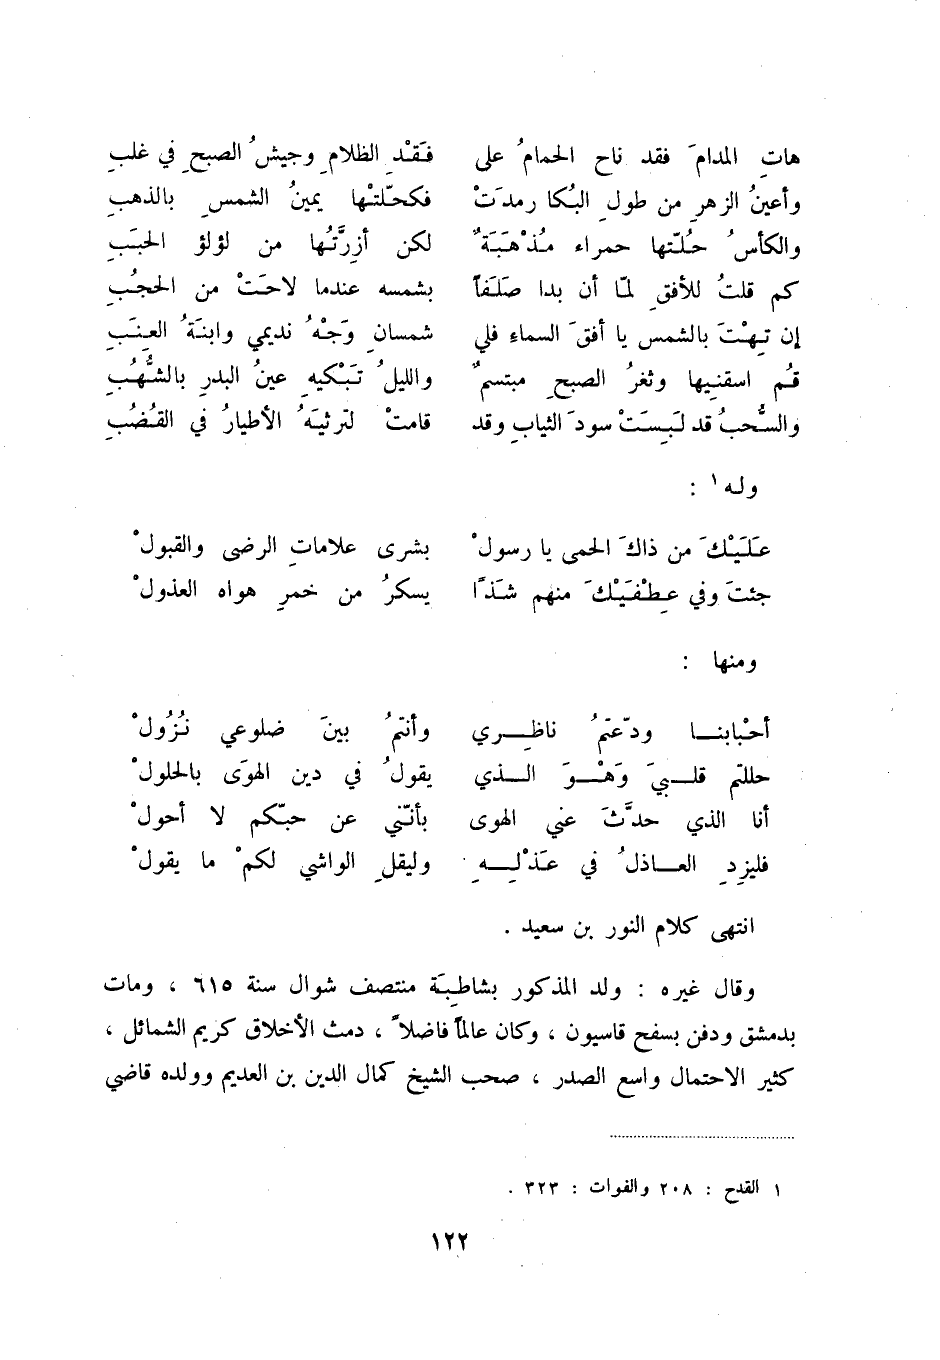 هاتِ المدامَ فقد ناح الحمامُ على فَقْدِ الظلامِ وجيشُ الصبحِ في غلبِ
وأعينُ الزهرِ من طولِ البُكا رمدتْ فكحّلتْها يمينُ الشمسِ بالذهبِ
والكأسُ حُلّتها حمراء مُذْهَبَةٌ لكن أزِرَّتُها من لؤلؤ الحبَبِ
كم قلتُ للأفقِ لمّا أن بدا صَلَفاً بشمسه عندما لاحَتْ من الحجُبِ
إن تِهْتَ بالشمس يا أفقَ السماءِ فلي شمسانِ وَجْهُ نديمي وابنةُ العِنَبِ
قُم اسقنيها وثغرُ الصبحِ مبتسمٌ والليلُ تَبْكيهِ عينُ البدرِ بالشُّهُبِ
والسُّحبُ قد لَبِسَتْ سودَ الثيابِ وقد قامتْ لترثيَهُ الأطيارُ في القُضُبِ
وله ١ :
عَلَيْكَ من ذاكَ الحمى يا رسولْ بشرى علاماتِ الرضى والقبولْ
جئتَ وفي عِطْفَيْكَ منهم شَذًا يسكرُ من خمرِ هواه العذولْ
ومنها :
أحْبابنــا ودّعتمُ ناظِــري وأنتمُ بينَ ضلوعي نُزُولْ
حللتم قلــبيَ وَهْــوَ الــذي يقولُ في دين الهوَى بالحلولْ
أنا الذي حدَّثَ عني الهوى بأنّني عن حبّكم لا أحولْ
فليزِدِ العــاذلُ في عَذْلِــهِ وليقلِ الواشي لكمْ ما يقولْ
انتهى كلام النور بن سعيد .
وقال غيره : ولد المذكور بشاطِبَة منتصف شوال سنة ٦١٥ ، ومات
بدمشق ودفن بسفح قاسيون ، وكان عالماً فاضلاً ، دمث الأخلاق كريم الشمائل ،
كثير الاحتمال واسع الصدر ، صحب الشيخ كمال الدين بن العديم وولده قاضي
١ القدح : ٢٠٨ والفوات : ٣٢٣ .
١٢٢